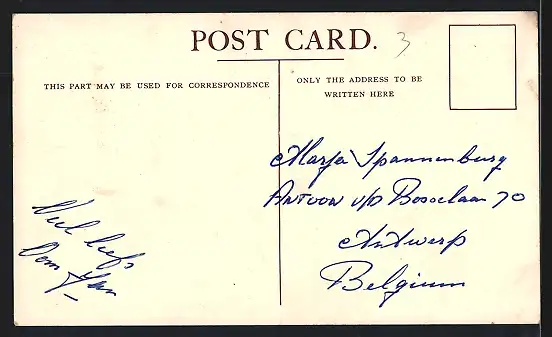 POST CARD.
3
THIS PART MAY BE USED FOR CORRESPONDENCE
ONLY THE ADDRESS TO BE
WRITTEN HERE
Marja Spannenburg
Antoon v/d Bosselaan 70
Antwerp
Belgium
Veel liefs
Oom Jan